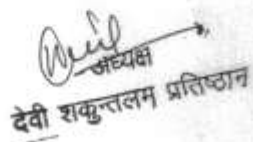 अध्यक्ष
देवी शकुन्तलम प्रतिष्ठान